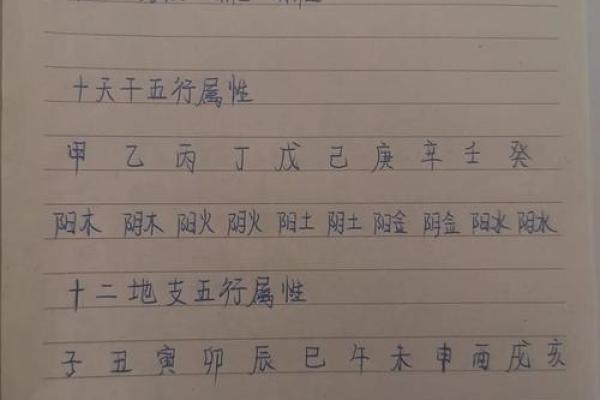 十天干五行属性
甲 乙 丙 丁 戊 己 庚 辛 壬 癸
阳木 阴木 阳火 阴火 阳土 阴土 阳金 阴金 阳水 阴水
十二地支五行属性
子 丑 寅 卯 辰 巳 午 未 申 酉 戌 亥